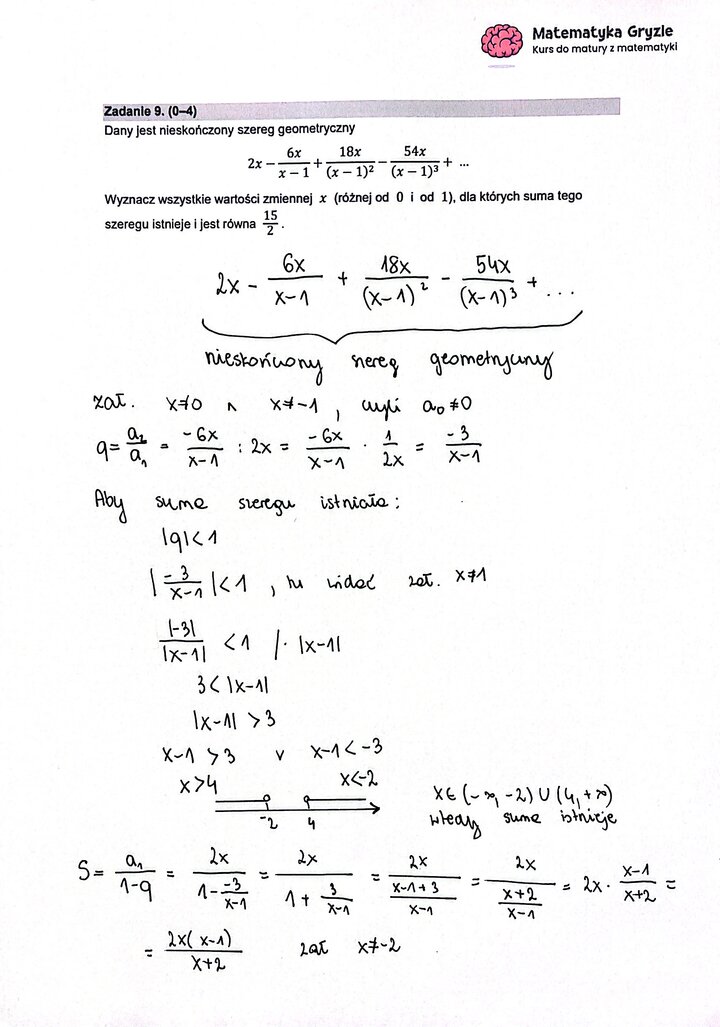 Matematyka Gryzie
Kurs do matury z matematyki
Zadanie 9. (0–4)
Dany jest nieskończony szereg geometryczny
2x − 6x/(x − 1) + 18x/(x − 1)² − 54x/(x − 1)³ + ...
Wyznacz wszystkie wartości zmiennej x (różnej od 0 i od 1), dla których suma tego
szeregu istnieje i jest równa 15/2.
2x − 6x/(x−1) + 18x/(x−1)² − 54x/(x−1)³ + ...
nieskończony szereg geometryczny
zał. x≠0 ∧ x≠−1, czyli a₀≠0
q = a₂/a₁ = −6x/(x−1) : 2x = −6x/(x−1) · 1/2x = −3/(x−1)
Aby suma szeregu istniała:
|q|<1
|−3/(x−1)|<1, tu widać zał. x≠1
|−3|/|x−1| <1 /· |x−1|
3<|x−1|
|x−1| >3
x−1 >3 ∨ x−1<−3
x>4 x<−2
−2 4
x∈(−∞,−2)∪(4,+∞)
wtedy suma istnieje
S = a₁/(1−q) = 2x/(1−(−3)/(x−1)) = 2x/(1+3/(x−1)) = 2x/((x−1+3)/(x−1)) = 2x/((x+2)/(x−1)) = 2x · (x−1)/(x+2) =
= 2x(x−1)/(x+2) zał x≠−2